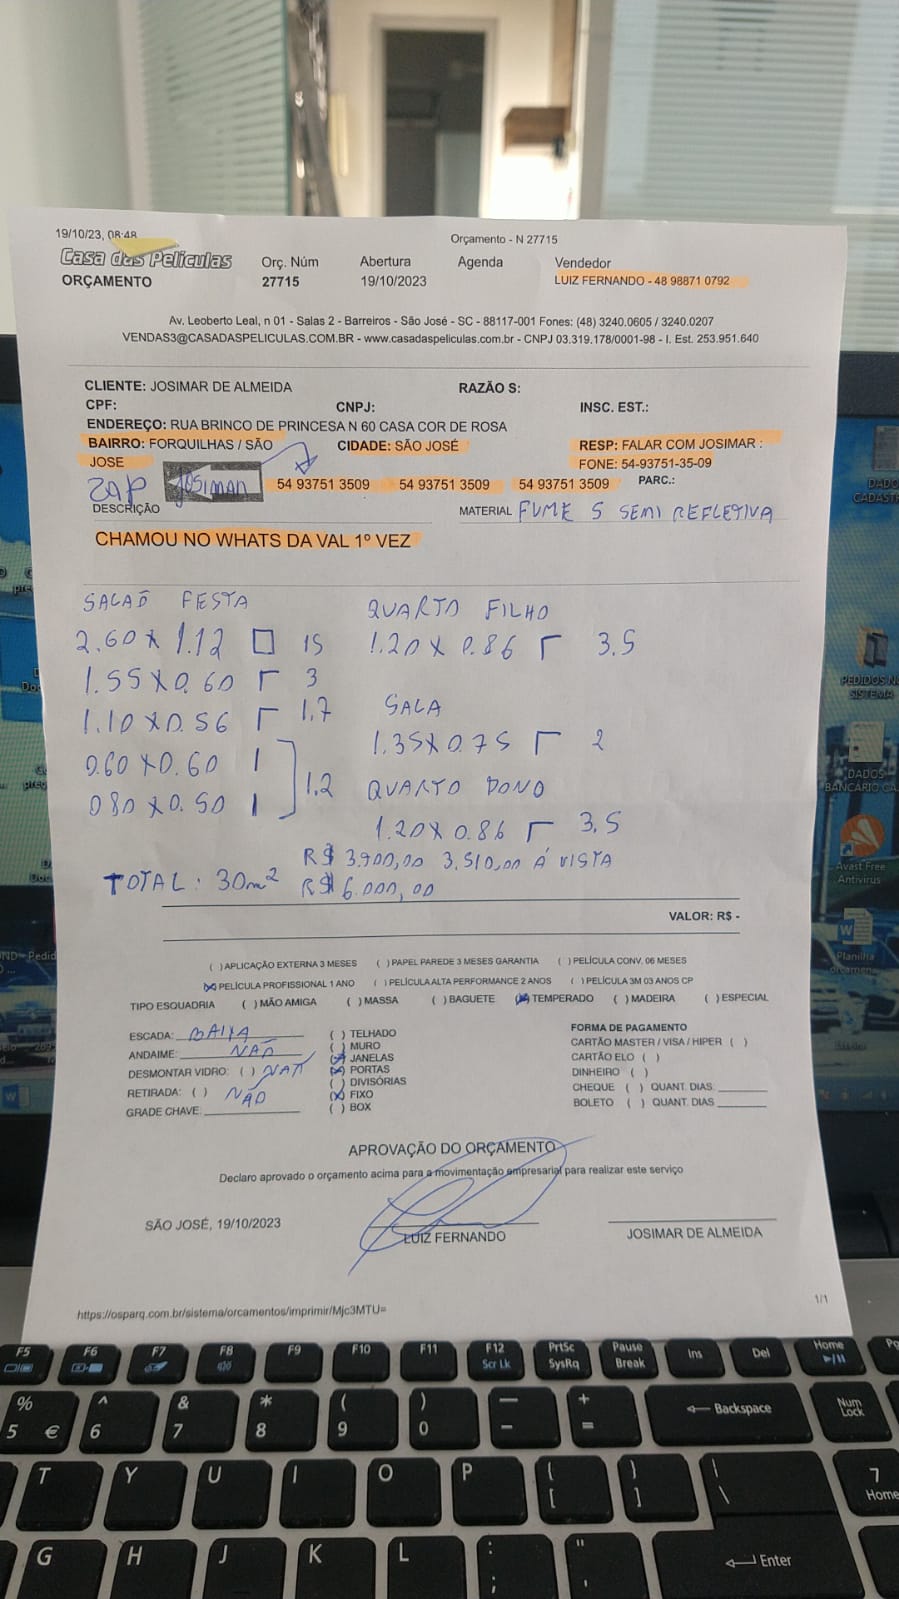 19/10/23, 08:48
Orçamento - N 27715
Casa das Películas
ORÇAMENTO
Orç. Núm
27715
Abertura
19/10/2023
Agenda
Vendedor
LUIZ FERNANDO - 48 98871 0792
Av. Leoberto Leal, n 01 - Salas 2 - Barreiros - São José - SC - 88117-001 Fones: (48) 3240.0605 / 3240.0207
VENDAS3@CASADASPELICULAS.COM.BR - www.casadaspeliculas.com.br - CNPJ 03.319.178/0001-98 - I. Est. 253.951.640
CLIENTE: JOSIMAR DE ALMEIDA RAZÃO S:
CPF: CNPJ: INSC. EST.:
ENDEREÇO: RUA BRINCO DE PRINCESA N 60 CASA COR DE ROSA
BAIRRO: FORQUILHAS / SÃO JOSE
CIDADE: SÃO JOSÉ
RESP: FALAR COM JOSIMAR :
FONE: 54-93751-35-09
ZAP JOSIMAR 54 93751 3509 54 93751 3509 54 93751 3509 PARC.:
DESCRIÇÃO
MATERIAL FUME 5 SEMI REFLETIVA
CHAMOU NO WHATS DA VAL 1º VEZ
SALAÕ FESTA
2.60 X 1.12 15
1.55 X 0.60 3
1.10 X 0.56 1,7
0.60 X 0.60
080 X 0.50
1,2
QUARTO FILHO
1.20 X 0.86 3,5
SALA
1.35 X 0.75 2
QUARTO DONO
1.20 X 0.86 3,5
R$ 3.900,00 3.510,00 Á VISTA
TOTAL: 30m² R$ 6.000,00
VALOR: R$ -
( ) APLICAÇÃO EXTERNA 3 MESES ( ) PAPEL PAREDE 3 MESES GARANTIA ( ) PELÍCULA CONV. 06 MESES
(X) PELÍCULA PROFISSIONAL 1 ANO ( ) PELÍCULA ALTA PERFORMANCE 2 ANOS ( ) PELÍCULA 3M 03 ANOS CP
TIPO ESQUADRIA ( ) MÃO AMIGA ( ) MASSA ( ) BAGUETE (X) TEMPERADO ( ) MADEIRA ( ) ESPECIAL
ESCADA: BAIXA
ANDAIME: NÃO
DESMONTAR VIDRO: ( ) NÃO
RETIRADA: ( ) NÃO
GRADE CHAVE:
( ) TELHADO
( ) MURO
(X) JANELAS
(X) PORTAS
( ) DIVISÓRIAS
(X) FIXO
( ) BOX
FORMA DE PAGAMENTO
CARTÃO MASTER / VISA / HIPER ( )
CARTÃO ELO ( )
DINHEIRO ( )
CHEQUE ( ) QUANT. DIAS:
BOLETO ( ) QUANT. DIAS
APROVAÇÃO DO ORÇAMENTO
Declaro aprovado o orçamento acima para a movimentação empresarial para realizar este serviço
SÃO JOSÉ, 19/10/2023
LUIZ FERNANDO
JOSIMAR DE ALMEIDA
https://osparq.com.br/sistema/orcamentos/imprimir/Mjc3MTU=
1/1
PEDIDOS NO
SISTEMA
DADOS
BANCÁRIO CA...
Avast Free
Antivirus
Planilha
orçamen...
F5 F6 F7 F8 F9 F10 F11 F12 Scr Lk PrtSc SysRq Pause Break Ins Del Home
% 5 € ^ 6 & 7 * 8 ( 9 ) 0 — - + = Backspace Num Lock
T Y U I O P { [ } ] | \ 7 Home
G H J K L : ; " ' Enter